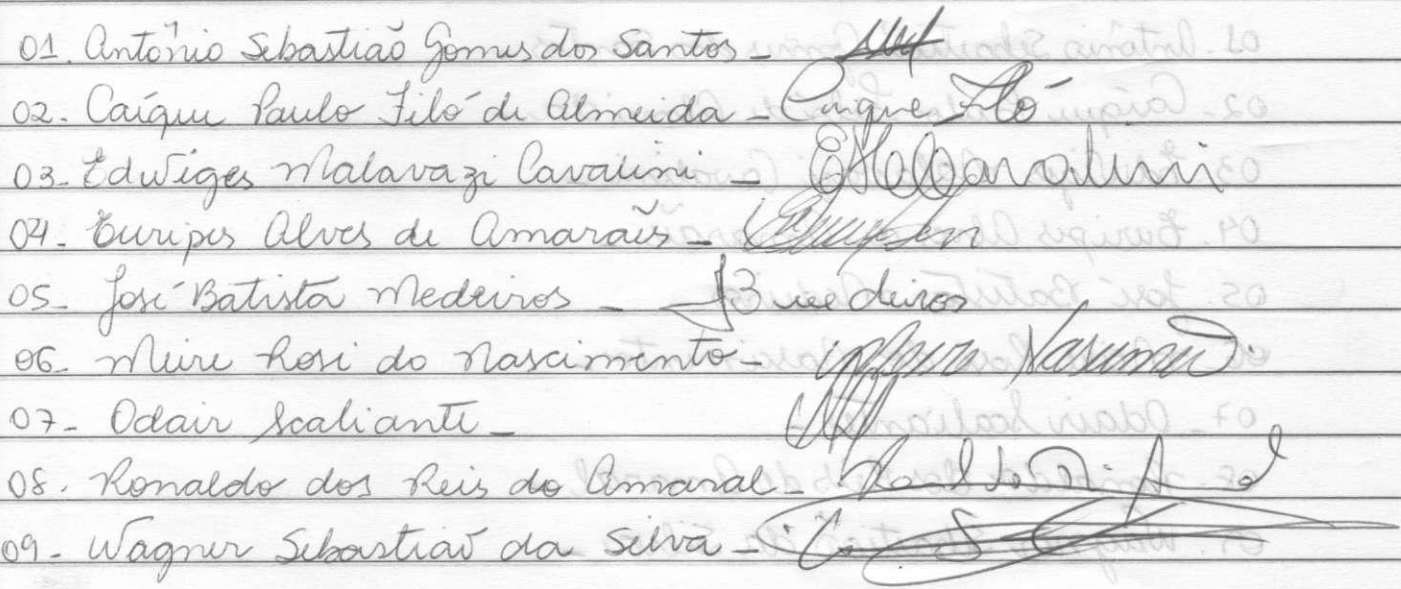 01. Antônio Sebastião Gomes dos Santos -
02. Caíque Paulo Filó de Almeida - Caique Filó
03- Edwiges Malavazi Cavalini - EMCavalini
04- Euripes Alves de Amarães -
05- José Batista Medeiros - JBmedeiros
06- Meire Rosi do Nascimento -
07- Odair Scaliante -
08. Ronaldo dos Reis do Amaral -
09- Wagner Sebastião da Silva -